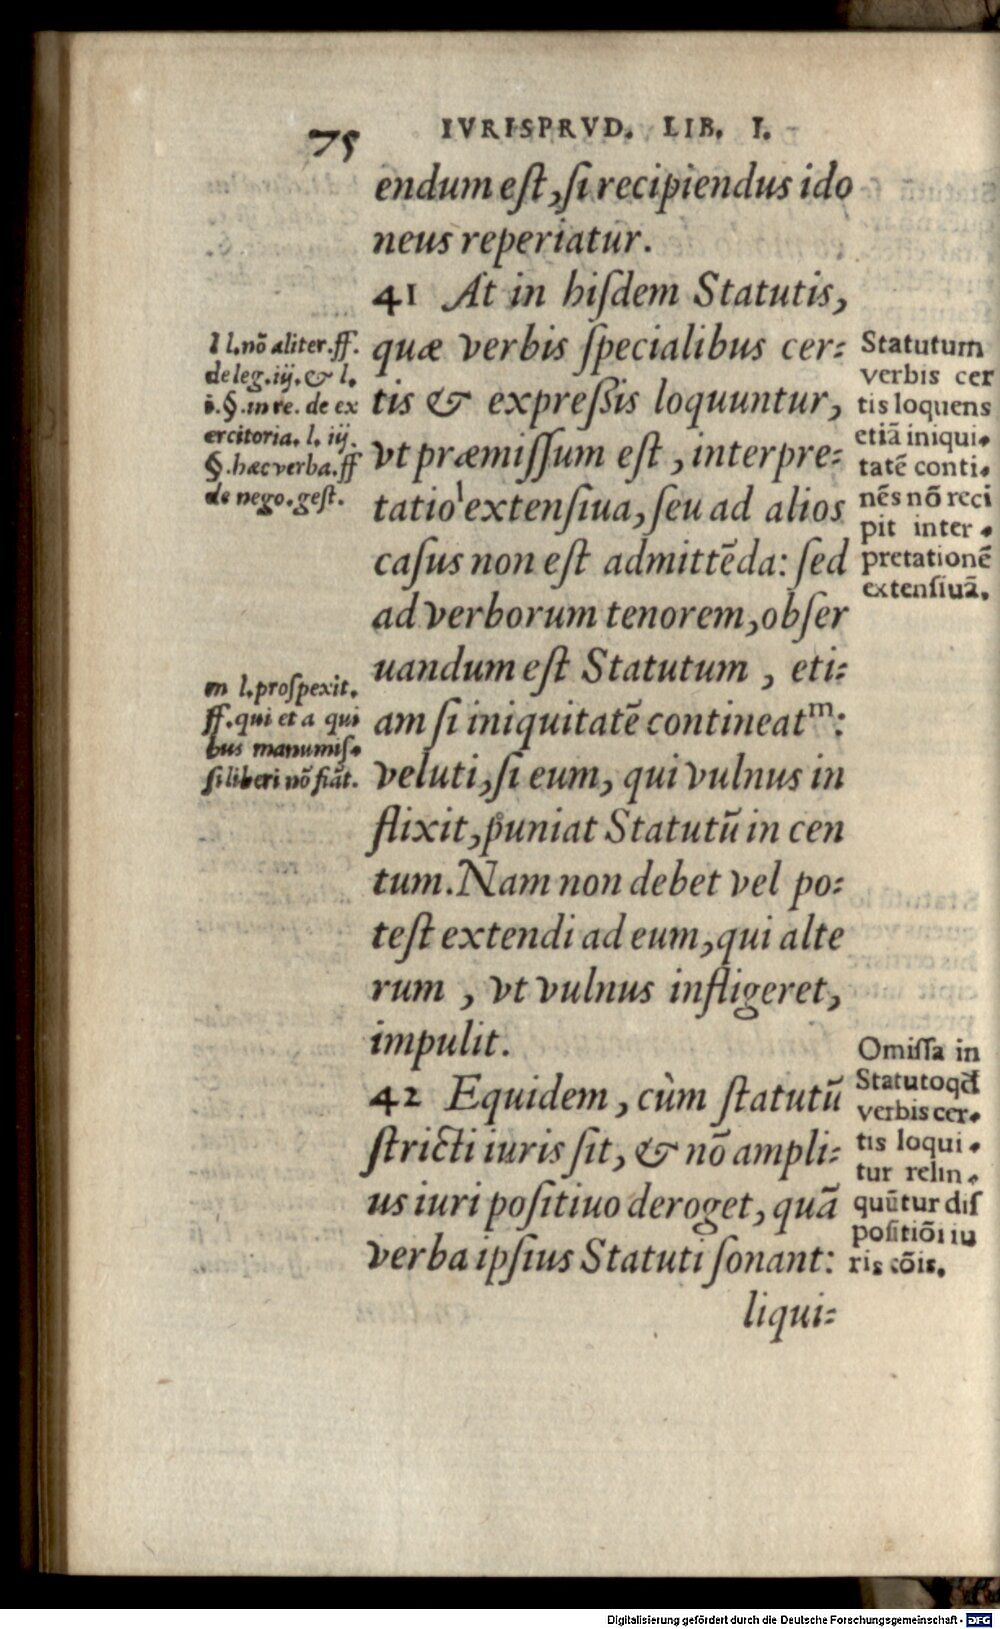 75
IVRISPRVD. LIB. I.
endum eſt, ſi recipiendus ido
neus reperiatur.
41 At in hiſdem Statutis,
quæ verbis ſpecialibus cer:
tis & expreßis loquuntur,
vt præmiſſum eſt, interpre:
tatio l extenſiua, ſeu ad alios
caſus non eſt admittēda: ſed
ad verborum tenorem, obſer
uandum eſt Statutum, eti:
am ſi iniquitatē contineat m:
veluti, ſi eum, qui vulnus in
flixit, puniat Statutū in cen
tum. Nam non debet vel po:
teſt extendi ad eum, qui alte
rum, vt vulnus infligeret,
impulit.
42 Equidem, cùm ſtatutū
ſtricti iuris ſit, & nō ampli:
us iuri poſitiuo deroget, quā
verba ipſius Statuti ſonant:
liqui:
l l. nō aliter. ff.
de leg. iij. & l.
i. §. in re. de ex
ercitoria. l. iij.
§. hæc verba. ff
de nego. geſt.
m l. proſpexit.
ff. qui et a qui
bus manumiſ.
ſi liberi nō fiāt.
Statutum
verbis cer
tis loquens
etiā iniqui.
tatē conti.
nēs nō reci
pit inter.
pretationē
extenſiuā.
Omiſſa in
Statuto qđ
verbis cer.
tis loqui.
tur relin.
quūtur diſ
poſitiōi iu
ris cōis.
Digitalisierung gefördert durch die Deutsche Forschungsgemeinschaft - DFG